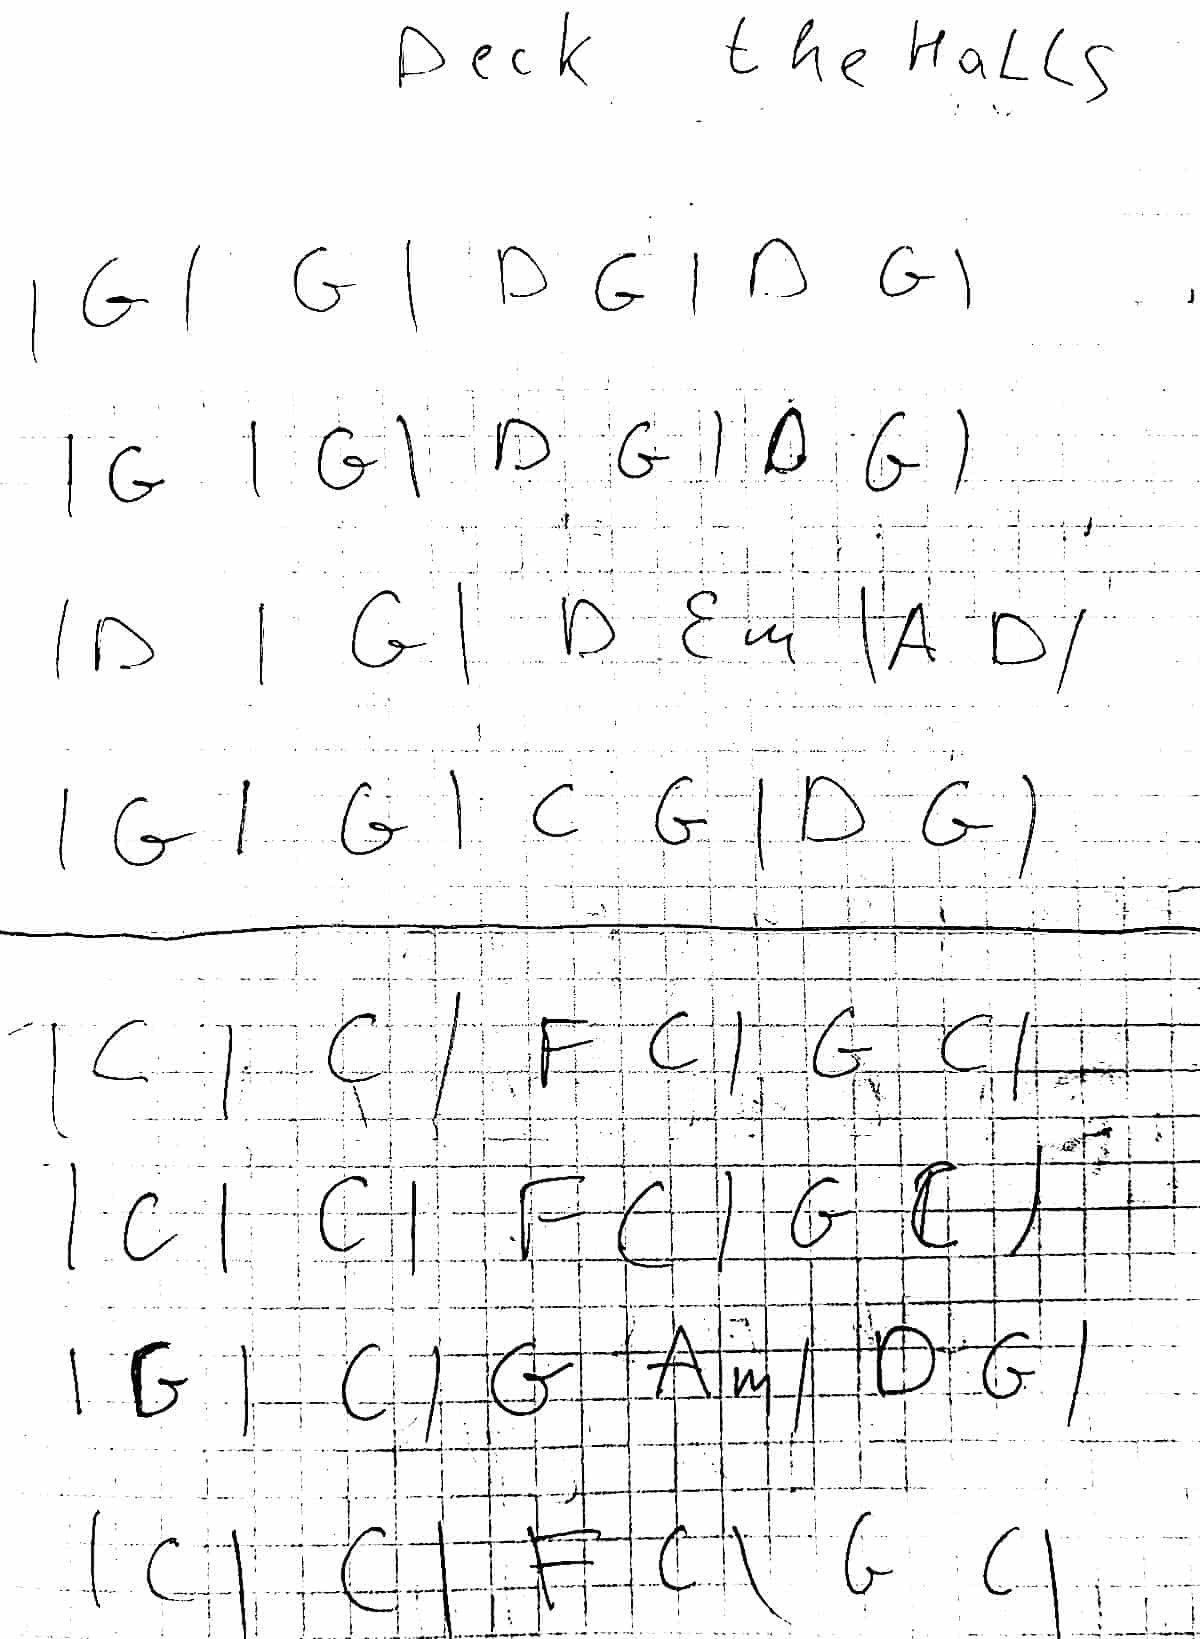 Deck the Halls
| G | G | D G | D G |
| G | G | D G | D G |
| D | G | D Em | A D |
| G | G | C G | D G |
| C | C | F C | G C |
| C | C | F C | G C |
| G | C | G Am | D G |
| C | C | F C | G C |